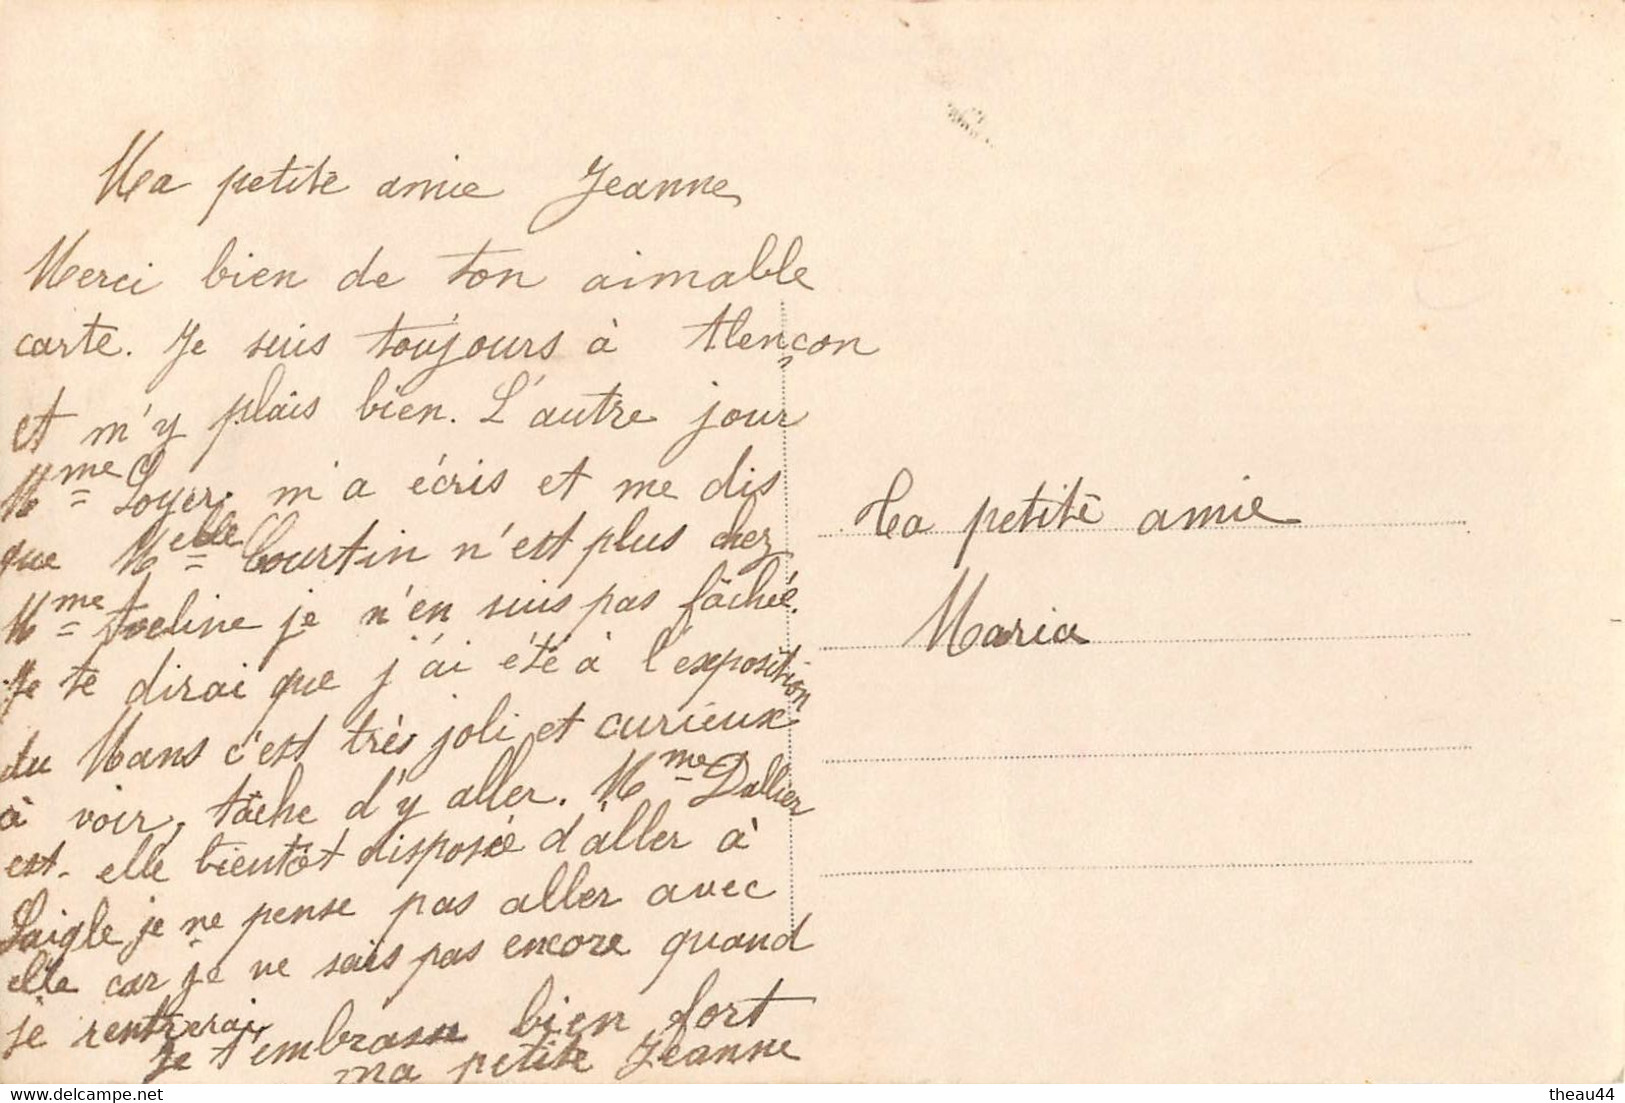 Ma petite amie Jeanne
Merci bien de ton aimable
carte. Je suis toujours à Alençon
et m'y plais bien. L'autre jour
Mme Loyer m'a écris et me dis
que Melle Courtin n'est plus chez
Mme je n'en suis pas fâchée.
Je te dirai que j'ai été à l'exposition
du Mans c'est très joli et curieux
à voir, tâche d'y aller. Mme Dallier
est-elle bientôt disposée d'aller à
Laigle je ne pense pas aller avec
elle car je ne sais pas encore quand
je rentrerai
Je t'embrasse bien fort
ma petite Jeanne
Ma petite amie
Maria
theau44